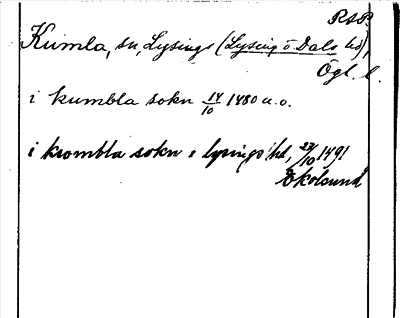 R.A.P.
Kumla, sn, Lysings (Lysing o Dals hd),
Ögl. l.
i kumbla sokn 14/10 1480 u.o.
i krombla sokn i lysings hd, 23/10 1491
Ekolsund